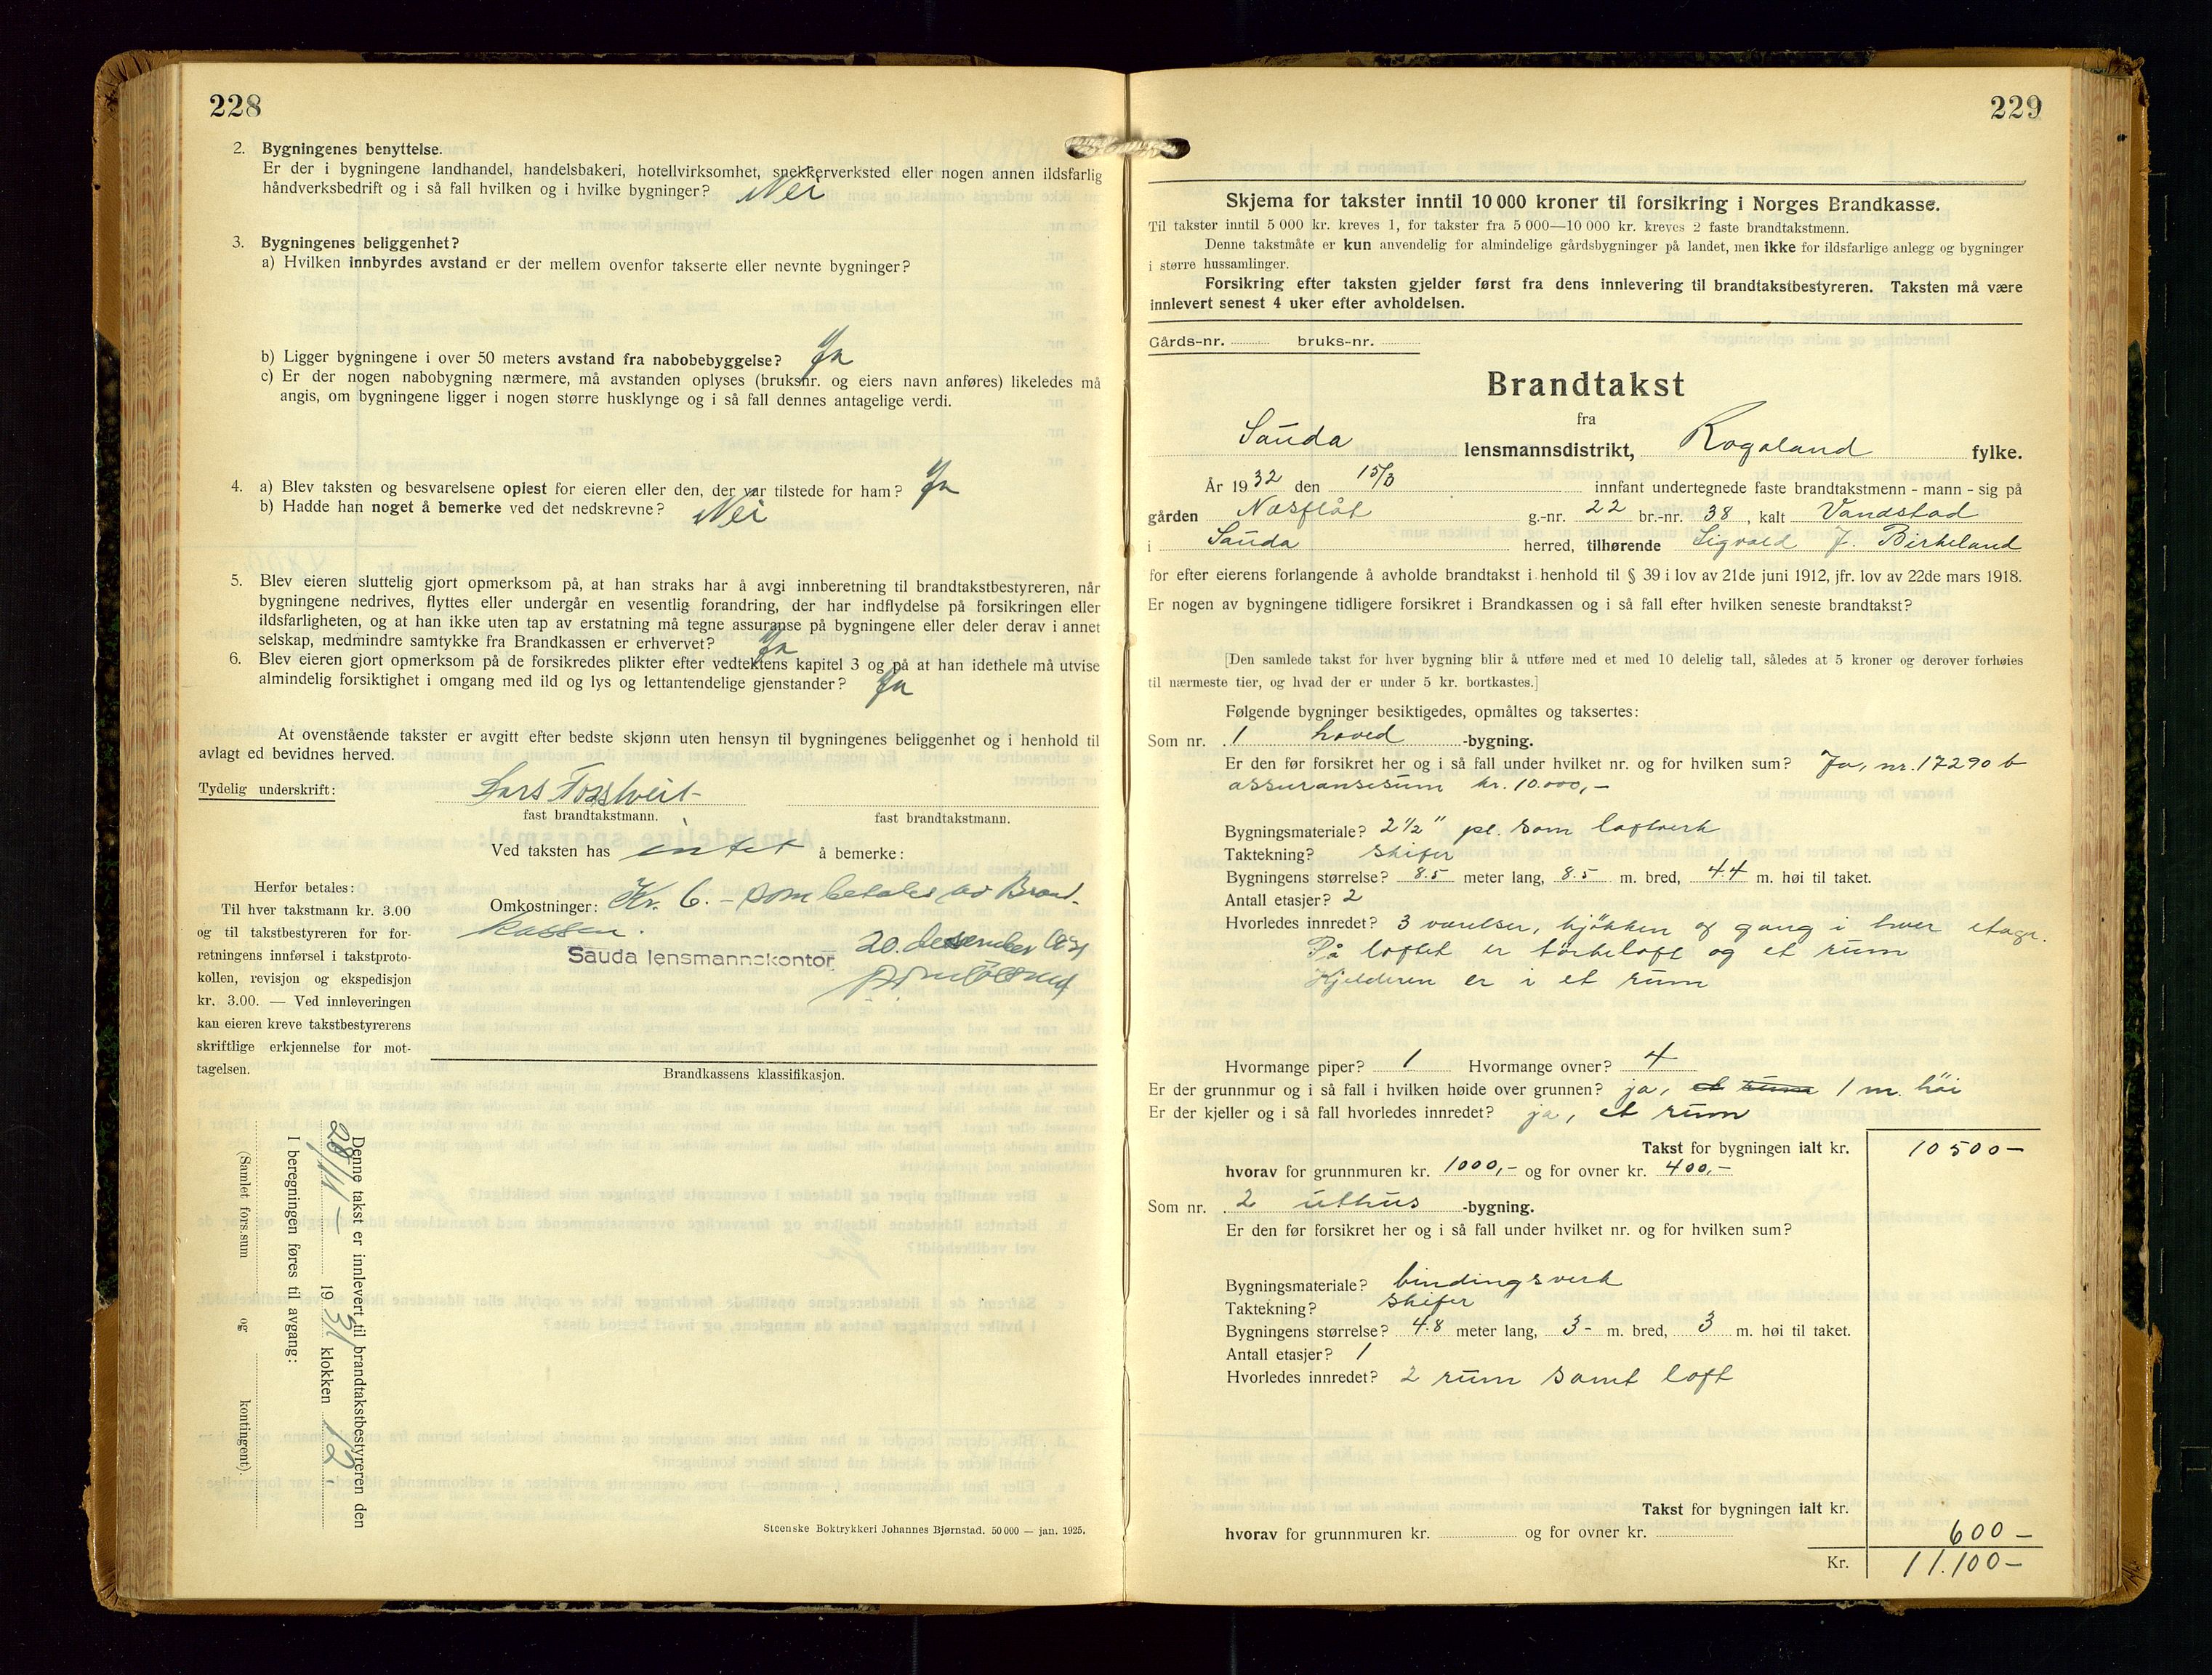 228
2. Bygningenes benyttelse.
Er der i bygningene landhandel, handelsbakeri, hotellvirksomhet, snekkerverksted eller nogen annen ildsfarlig
håndverksbedrift og i så fall hvilken og i hvilke bygninger? Nei
3. Bygningenes beliggenhet?
a) Hvilken innbyrdes avstand er der mellem ovenfor takserte eller nevnte bygninger?
b) Ligger bygningene i over 50 meters avstand fra nabobebyggelse? Ja
c) Er der nogen nabobygning nærmere, må avstanden oplyses (bruksnr. og eiers navn anføres) likeledes må
angis, om bygningene ligger i nogen større husklynge og i så fall dennes antagelige verdi.
4. a) Blev taksten og besvarelsene oplest for eieren eller den, der var tilstede for ham? Ja
b) Hadde han noget å bemerke ved det nedskrevne? Nei
5. Blev eieren sluttelig gjort opmerksom på, at han straks har å avgi innberetning til brandtakstbestyreren, når
bygningene nedrives, flyttes eller undergår en vesentlig forandring, der har indflydelse på forsikringen eller
ildsfarligheten, og at han ikke uten tap av erstatning må tegne assuranse på bygningene eller deler derav i annet
selskap, medmindre samtykke fra Brandkassen er erhvervet? Ja
6. Blev eieren gjort opmerksom på de forsikredes plikter efter vedtektens kapitel 3 og på at han idethele må utvise
almindelig forsiktighet i omgang med ild og lys og lettantendelige gjenstander? Ja
At ovenstående takster er avgitt efter bedste skjønn uten hensyn til bygningenes beliggenhet og i henhold til
avlagt ed bevidnes herved.
Tydelig underskrift: Lars
fast brandtakstmann. fast brandtakstmann.
Ved taksten has intet å bemerke:
Omkostninger: Kr. 6.- som betales av Brand-
kassen.
Sauda lensmannskontor 20. desember
Herfor betales:
Til hver takstmann kr. 3.00
og til takstbestyreren for for-
retningens innførsel i takstproto-
kollen, revisjon og ekspedisjon
kr. 3.00. — Ved innleveringen
kan eieren kreve takstbestyrerens
skriftlige erkjennelse for mot-
tagelsen.
Brandkassens klassifikasjon.
Denne takst er innlevert til brandtakstbestyreren den
28/11 - 19 31 klokken 12.
I beregningen føres til avgang:
(Samlet fors.sum og kontingent).
Steenske Boktrykkeri Johannes Bjørnstad. 50 000 — jan. 1925.
229
Skjema for takster inntil 10 000 kroner til forsikring i Norges Brandkasse.
Til takster inntil 5 000 kr. kreves 1, for takster fra 5 000—10 000 kr. kreves 2 faste brandtakstmenn.
Denne takstmåte er kun anvendelig for almindelige gårdsbygninger på landet, men ikke for ildsfarlige anlegg og bygninger
i større hussamlinger.
Forsikring efter taksten gjelder først fra dens innlevering til brandtakstbestyreren. Taksten må være
innlevert senest 4 uker efter avholdelsen.
Gårds-nr. bruks-nr.
Brandtakst
fra
Sauda lensmannsdistrikt, Rogaland fylke.
År 1932 den 15/3 innfant undertegnede faste brandtakstmenn - mann - sig på
gården Næsflåt g.-nr. 22 br.-nr. 38, kalt Vandstad
i Sauda herred, tilhørende Sigvald J. Birkeland
for efter eierens forlangende å avholde brandtakst i henhold til § 39 i lov av 21de juni 1912, jfr. lov av 22de mars 1918.
Er nogen av bygningene tidligere forsikret i Brandkassen og i så fall efter hvilken seneste brandtakst?
[Den samlede takst for hver bygning blir å utføre med et med 10 delelig tall, således at 5 kroner og derover forhøies
til nærmeste tier, og hvad der er under 5 kr. bortkastes.]
Følgende bygninger besiktigedes, opmåltes og taksertes:
Som nr. 1 hoved -bygning.
Er den før forsikret her og i så fall under hvilket nr. og for hvilken sum? Ja, nr. 17290 b
assuransesum kr. 10.000,-
Bygningsmateriale? 2½" pl. som loftverk
Taktekning? skifer
Bygningens størrelse? 8.5 meter lang, 8.5 m. bred, 4.4 m. høi til taket.
Antall etasjer? 2
Hvorledes innredet? 3 værelser, kjøkken og gang i hver etage.
På loftet er tørkeloft og et rum
Kjelderen er i et rum
Hvormange piper? 1 Hvormange ovner? 4
Er der grunnmur og i så fall i hvilken høide over grunnen? ja, et rum 1 m. høi
Er der kjeller og i så fall hvorledes innredet? ja, et rum
Takst for bygningen ialt kr. 10500-
hvorav for grunnmuren kr. 1000,- og for ovner kr. 400,-
Som nr. 2 uthus -bygning.
Er den før forsikret her og i så fall under hvilket nr. og for hvilken sum?
Bygningsmateriale? bindingsverk
Taktekning? skifer
Bygningens størrelse? 4.8 meter lang, 3- m. bred, 3 m. høi til taket.
Antall etasjer? 1
Hvorledes innredet? 2 rum samt loft
Takst for bygningen ialt kr.
hvorav for grunnmuren kr. og for ovner kr. 600-
Kr. 11.100-